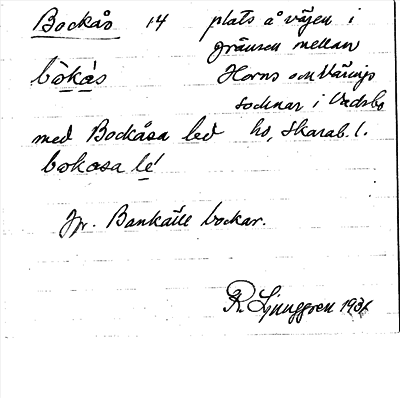 Bockås 14 plats å vägen i
gränsen mellan
bòkås Horns och Värings
socknar i Vadsbo
med Bockåsa led hd, Skarab. l.
bokosa lé
Jfr. Bankälle bockar.
R. Ljunggren 1931